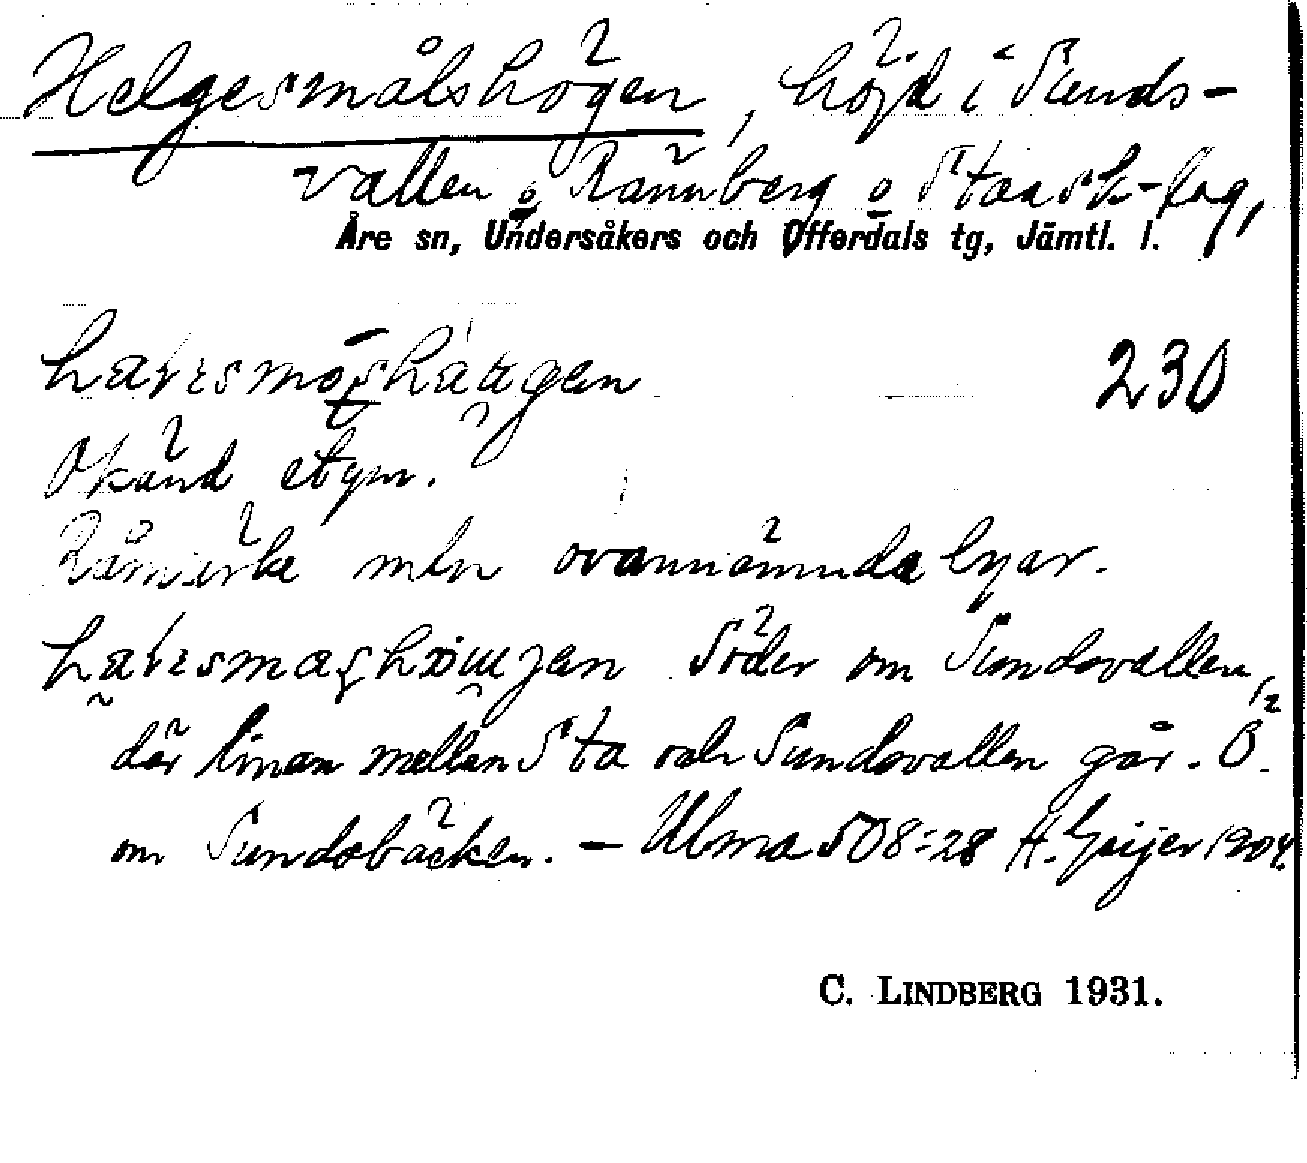 Helgesmålshögen, höjd i Sunds-
vallen o Rännberg o Staa sk-lag,
Åre sn, Undersåkers och Offerdals tg, Jämtl. l.
230
Okänd etym.
Råmärke mln ovannämnda byar.
Söder om Sundsvallen,
där linan mellan Sta och Sundsvallen går. Ö.
om Sundsbäcken. – Ulma 508:28 H. Geijer 1904.
C. LINDBERG 1931.